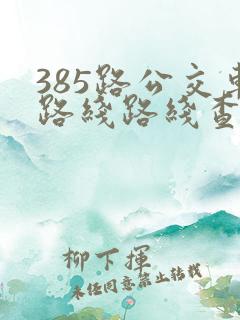 385路公交车
路线路线查
柳下挥
未经同意禁止转载